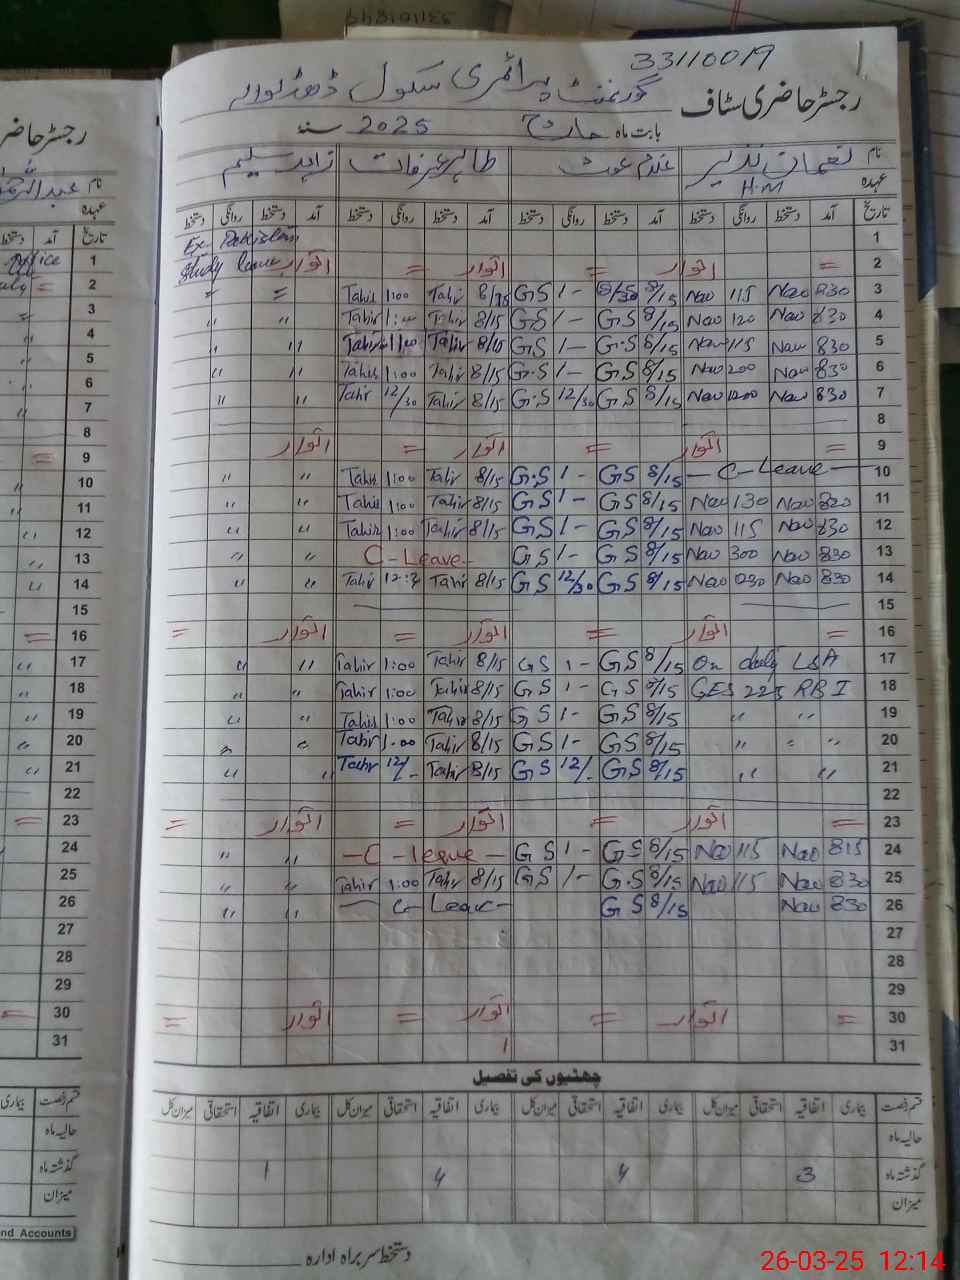 33110019
رجسٹر حاضری سٹاف گورنمنٹ پرائمری سکول
بابت ماہ مارچ 2025 سنہ
نام نعمان نذیر غلام غوث طاہر عرفات زاہد سلیم
عہدہ H.M
تاریخ آمد دستخط روانگی دستخط آمد دستخط روانگی دستخط آمد دستخط روانگی دستخط آمد دستخط روانگی دستخط
1 Ex-Pakistan
2 = اتوار = اتوار = اتوار Study leave
3 830 Nao 115 Nao 8/15 1- GS 8/15 Tahir 1:00 Tahir = =
4 830 Nao 120 Nao 8/15 GS 1- GS 8/15 Tahir 1:00 Tahir " "
5 830 Nao 115 Nao 8/15 G.S 1- GS 8/15 Tahir 1:00 Tahir " "
6 830 Nao 200 Nao 8/15 GS 1- G.S 8/15 Tahir 1:00 Tahir " "
7 830 Nao 1200 Nao 8/15 GS 12/30 G.S 8/15 Tahir 12/30 Tahir " "
8
9 = اتوار = اتوار = اتوار
10 — C-Leave — 8/15 GS 1- G.S 8/15 Tahir 1:00 Tahir " "
11 820 Nao 130 Nao 8/15 GS 1- GS 8/15 Tahir 1:00 Tahir " "
12 830 Nao 115 Nao 8/15 GS 1- GS 8/15 Tahir 1:00 Tahir " "
13 830 Nao 300 Nao 8/15 GS 1- GS C-Leave- " "
14 830 Nao Nao 8/15 GS 12/30 GS 8/15 Tahir Tahir " "
15
16 = اتوار = اتوار = اتوار =
17 On duty LSA 8/15 GS 1- GS 8/15 Tahir 1:00 Tahir " "
18 GES 225 RB I 8/15 GS 1- GS 8/15 Tahir 1:00 Tahir " "
19 " " 8/15 GS 1- GS 8/15 Tahir 1:00 Tahir " "
20 " " " 8/15 GS 1- GS 8/15 Tahir 1:00 Tahir " "
21 " " 8/15 GS 12/- GS 8/15 Tahir 12/- Tahir " "
22
23 = اتوار = اتوار = اتوار =
24 815 Nao 115 Nao 8/15 GS 1- GS -C-leave- " "
25 830 Nao 115 Nao 8/15 G.S 1- GS 8/15 Tahir 1:00 Tahir " "
26 830 Nao 8/15 GS — C-Leave- " "
27
28
29
30 = اتوار = اتوار = اتوار =
31
چھٹیوں کی تفصیل
قسم رخصت بیماری اتفاقیہ استحقاقی میزان کل بیماری اتفاقیہ استحقاقی میزان کل بیماری اتفاقیہ استحقاقی میزان کل بیماری اتفاقیہ استحقاقی میزان کل
حالیہ ماہ
گذشتہ ماہ 3 4 4 1
میزان
دستخط سربراہ ادارہ
nd Accounts
26-03-25 12:14